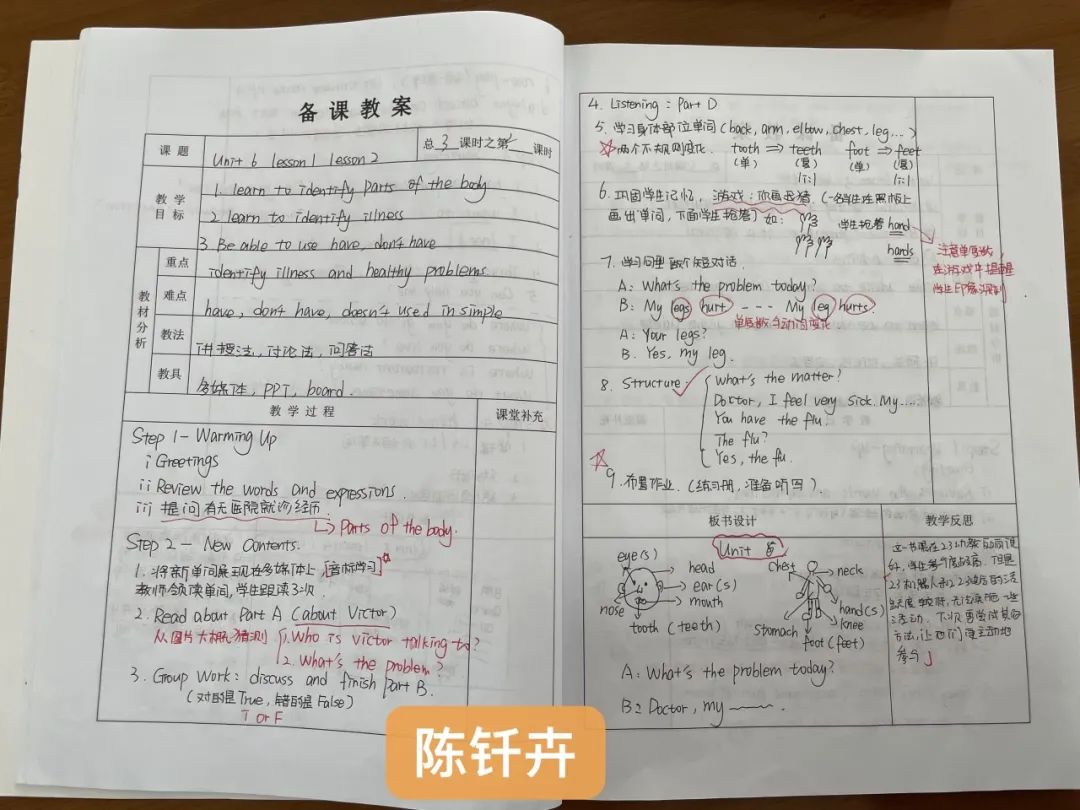 备课教案
课题 Unit 6 lesson 1 lesson 2 总 3 课时之第 课时
教学目标
1. learn to identify parts of the body
2 learn to identify illness
3. Be able to use have, don't have
教材分析
重点 identify illness and healthy problems
难点 have, don't have, doesn't used in simple
教法 讲授法, 讨论法, 问答法
教具 多媒体, PPT, board.
教学过程 课堂补充
Step 1 - Warming Up
i Greetings
ii Review the words and expressions.
iii 提问有无医院就诊经历
↳ Parts of the body.
Step 2 - New Contents.
1. 将新单词展现在多媒体上 [音标学习]☆
教师领读单词, 学生跟读3次.
2. Read about Part A (about Victor)
从图片大概猜测 1. Who is victor talking to?
2. What's the problem?
3. Group Work: discuss and finish part B.
(对的是True, 错的是False)
T or F
4. Listening: Part D
5. 学习身体部位单词 (back, arm, elbow, chest, leg...)
☆两个不规则变化. tooth ⇒ teeth foot ⇒ feet
(单) (复) (单) (复)
/i:/ /i:/
6. 巩固学生记忆, 游戏: 你画我猜. (一名学生在黑板上
画出单词, 下面学生抢答) 如: 学生抢答 hand
hands
注意单复数,
在游戏中提醒
学生印象深刻
7. 学习问里 短对话.
A: What's the problem today?
B: My legs hurt --- My leg hurts.
单复数与动词变化
A: Your legs?
B. Yes, my leg.
8. Structure: ✓ What's the matter?
Doctor, I feel very sick. My......
You have the flu.
The flu?
Yes, the flu.
☆
9. 布置作业. (练习册, 准备听写).
板书设计 教学反思
Unit 6
eye(s) head ear(s) mouth nose tooth (teeth)
chest neck hand(s) knee Stomach foot (feet)
A: What's the problem today?
B: Doctor, my ——.
这一节课在23
学生参与度 高. 但是
23机器人和22 的
无法实施一些
活动. 下次需尝试其他
方法, 让他们更主动地
参与
陈钎卉